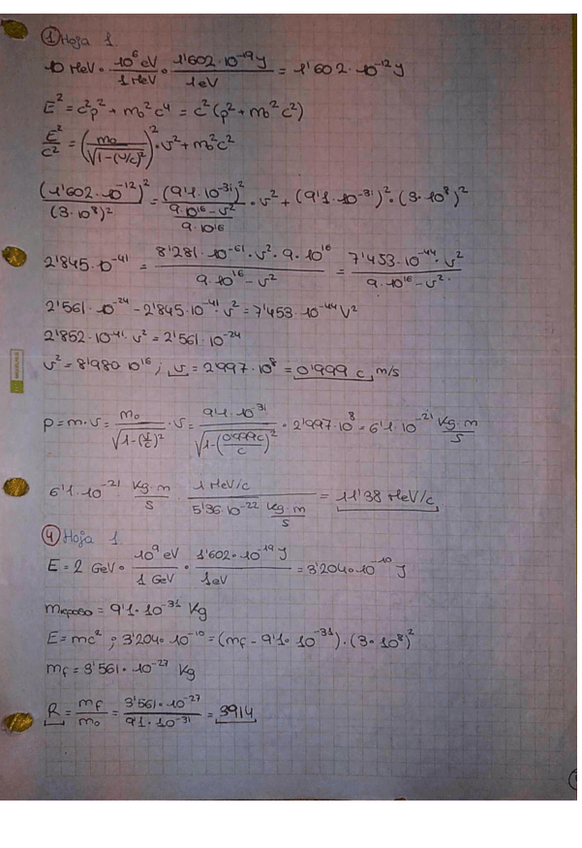 ① Hoja 1.
10 MeV · 10^6 eV / 1 MeV · 1'602·10^-19 J / 1 eV = 1'602·10^-12 J
E² = c²p² + m₀²c⁴ = c²(p² + m₀²c²)
E²/c² = (m₀/√(1-(v/c)²))² · v² + m₀²c²
(1'602·10^-12)²/(3·10^8)² = (9'1·10^-31)²/((9·10^16 - v²)/(9·10^16)) · v² + (9'1·10^-31)² · (3·10^8)²
2'845·10^-41 = (8'281·10^-61 · v² · 9·10^16)/(9·10^16 - v²) = (7'453·10^-44 · v²)/(9·10^16 - v²)
2'561·10^-24 - 2'845·10^-41 · v² = 7'453·10^-44 v²
2'852·10^-41 · v² = 2'561·10^-24
v² = 8'980 10^16 ; v = 2'997·10^8 = 0'999 c m/s
p = m·v = m₀/√(1-(v/c)²) · v = 9'1·10^-31/√(1-(0'999c/c)²) · 2'997·10^8 = 6'1·10^-21 Kg·m/s
6'1·10^-21 Kg·m/s · 1 MeV/c / 5'36·10^-22 Kg·m/s = 11'38 MeV/c
④ Hoja 1
E = 2 GeV · 10^9 eV / 1 GeV · 1'602·10^-19 J / 1 eV = 3'204·10^-10 J
m = 9'1·10^-31 Kg
E = mc² ; 3'204·10^-10 = (mf - 9'1·10^-31) · (3·10^8)²
mf = 3'561·10^-27 Kg
R = mf/m₀ = 3'561·10^-27 / 9'1·10^-31 = 3914